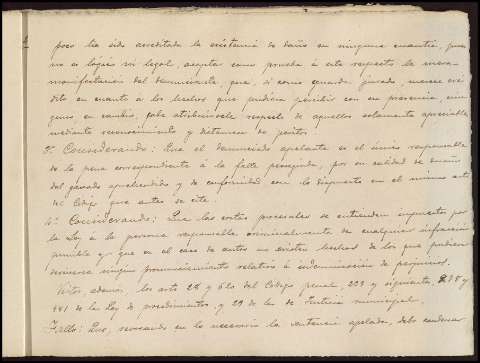 poco ha sido acreditada la existencia de daños en ninguna cuantía, pues
no es lógico ni legal, aceptar como prueba á este respecto la mera
manifestacion del denunciante, que, si como guarda jurado, merece cré
dito en cuanto á los hechos que pudiera percibir con su presencia, nin
guno, en cambio, cabe atribuirsele respecto de aquellos solamente apreciables
mediante reconocimiento y dictamen de peritos.
3º Considerando: Que el denunciado apelante es el único responsable
de la pena correspondiente á la falta perseguida, por su calidad de dueño
del ganado aprehendido y de conformidad con lo dispuesto en el mismo arti
del Código que antes se cita.
4º Considerando: Que las costas procesales se entienden impuestas por
la Ley á la persona responsable criminalmente de cualquier infracción
punible y que en el caso de autos no existen hechos de los que pudiera
derivarse ningun pronunciamiento relativo á indemnización de perjuicios.
Vistos, además, los arts 28 y 610 del Código penal, 203 y siguientes, 978 y
981 de la Ley de procedimientos, y 29 de la de Justicia municipal.
Fallo: Que, revocando en lo necesario la sentencia apelada, debo condenar